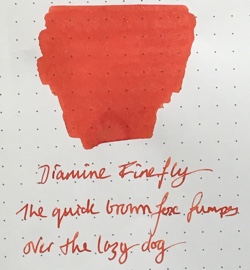 Diamine Firefly
The quick brown fox jumps
over the lazy dog